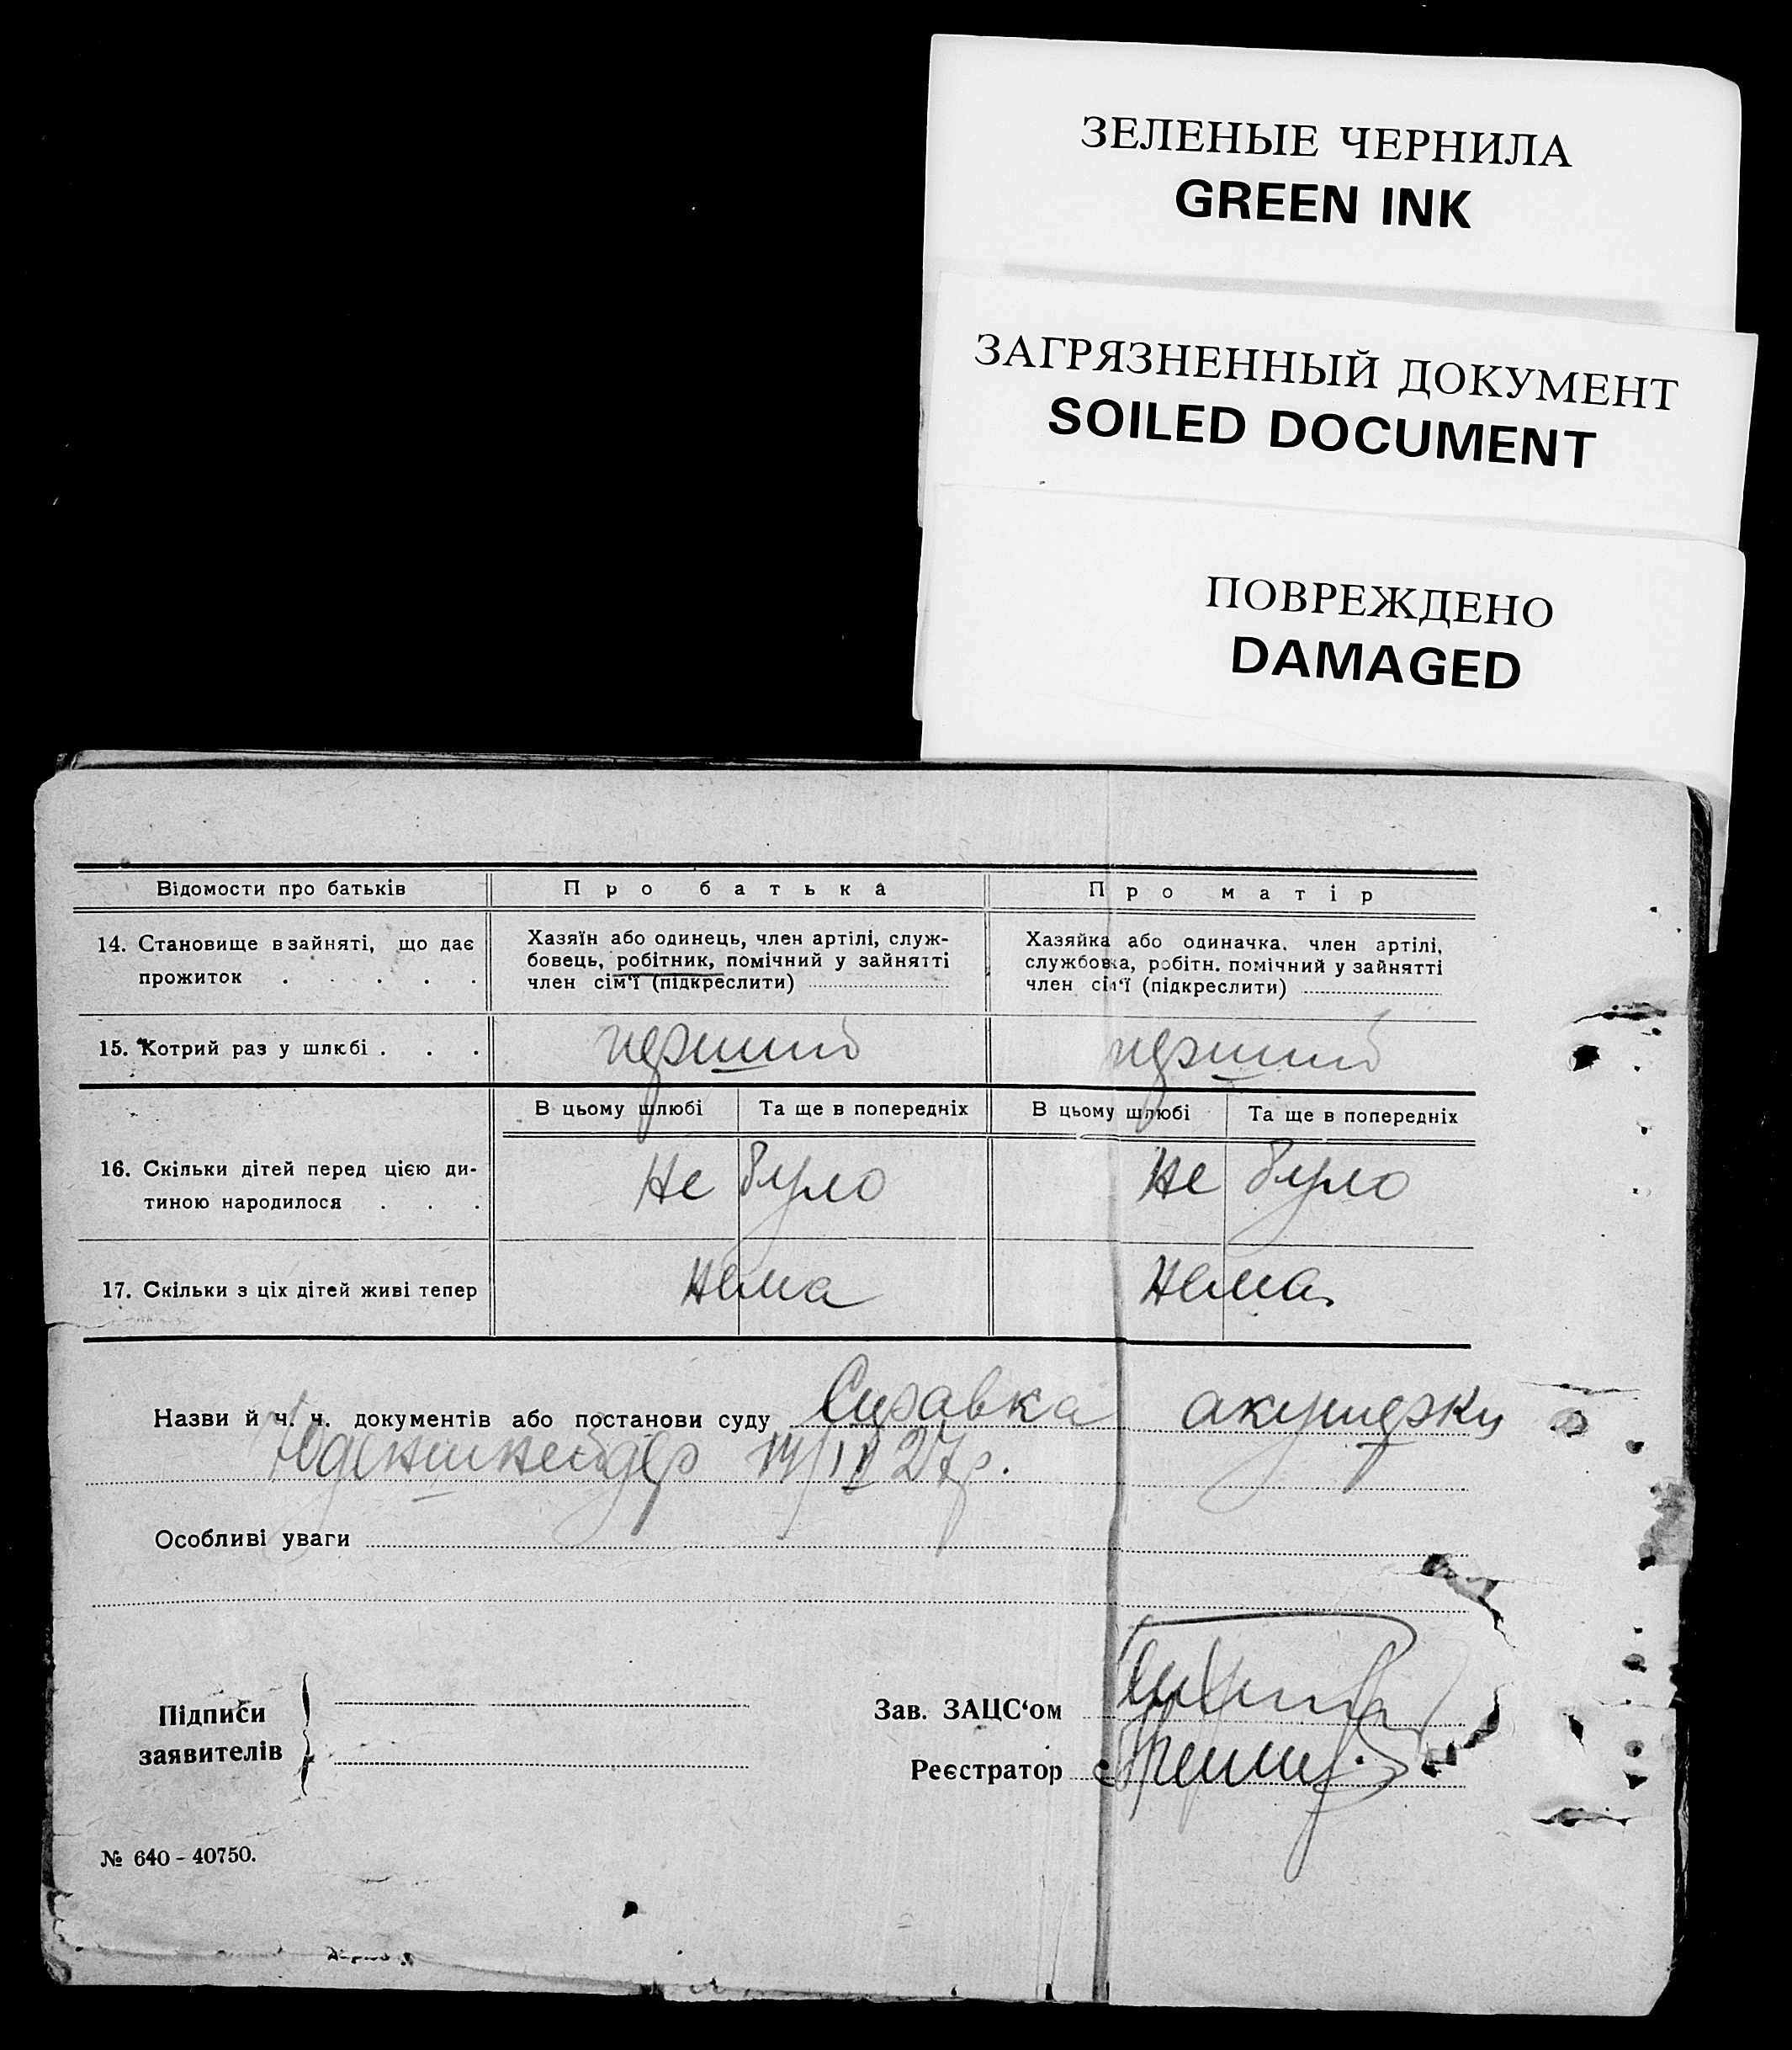 ЗЕЛЕНЫЕ ЧЕРНИЛА
GREEN INK
ЗАГРЯЗНЕННЫЙ ДОКУМЕНТ
SOILED DOCUMENT
ПОВРЕЖДЕНО
DAMAGED
Відомости про батьків Про батька Про матір
14. Становище в зайняті, що дає прожиток . . . . .
Хазяїн або одинець, член артілі, служ-
бовець, робітник, помічний у зайнятті
член сім'ї (підкреслити)
Хазяйка або одиначка, член артілі,
службовка, робітн. помічний у зайнятті
член сім'ї (підкреслити)
15. Котрий раз у шлюбі . . . перший перший
В цьому шлюбі Та ще в попередніх В цьому шлюбі Та ще в попередніх
16. Скільки дітей перед цією ди-
тиною народилося . . . Не було Не було
17. Скільки з ціх дітей живі тепер Нема Нема
Назви й ч. ч. документів або постанови суду Справка акушерки
14/II 27р.
Особливі уваги
Підписи
заявителів
Зав. ЗАЦС'ом
Реєстратор
№ 640 - 40750.